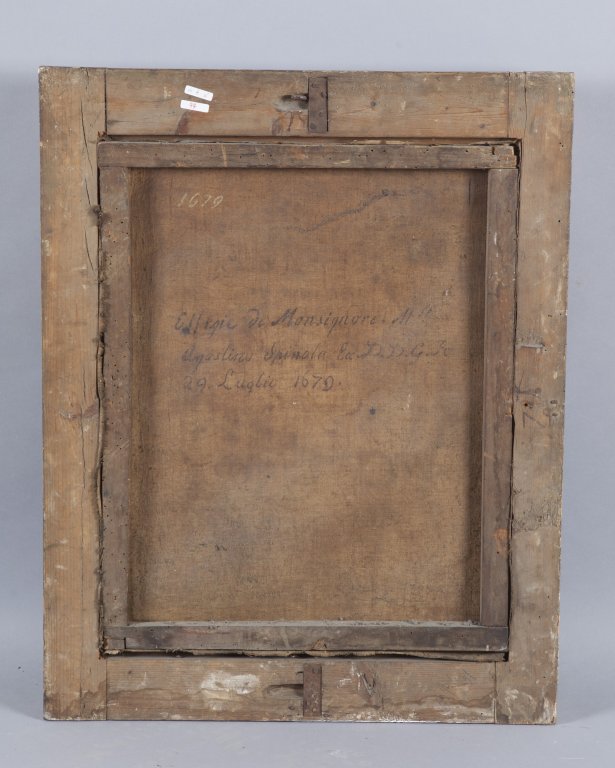 1679
Effigie di Monsignore
Agostino Spinola Ex D.D.G.
a 9. Luglio 1679.